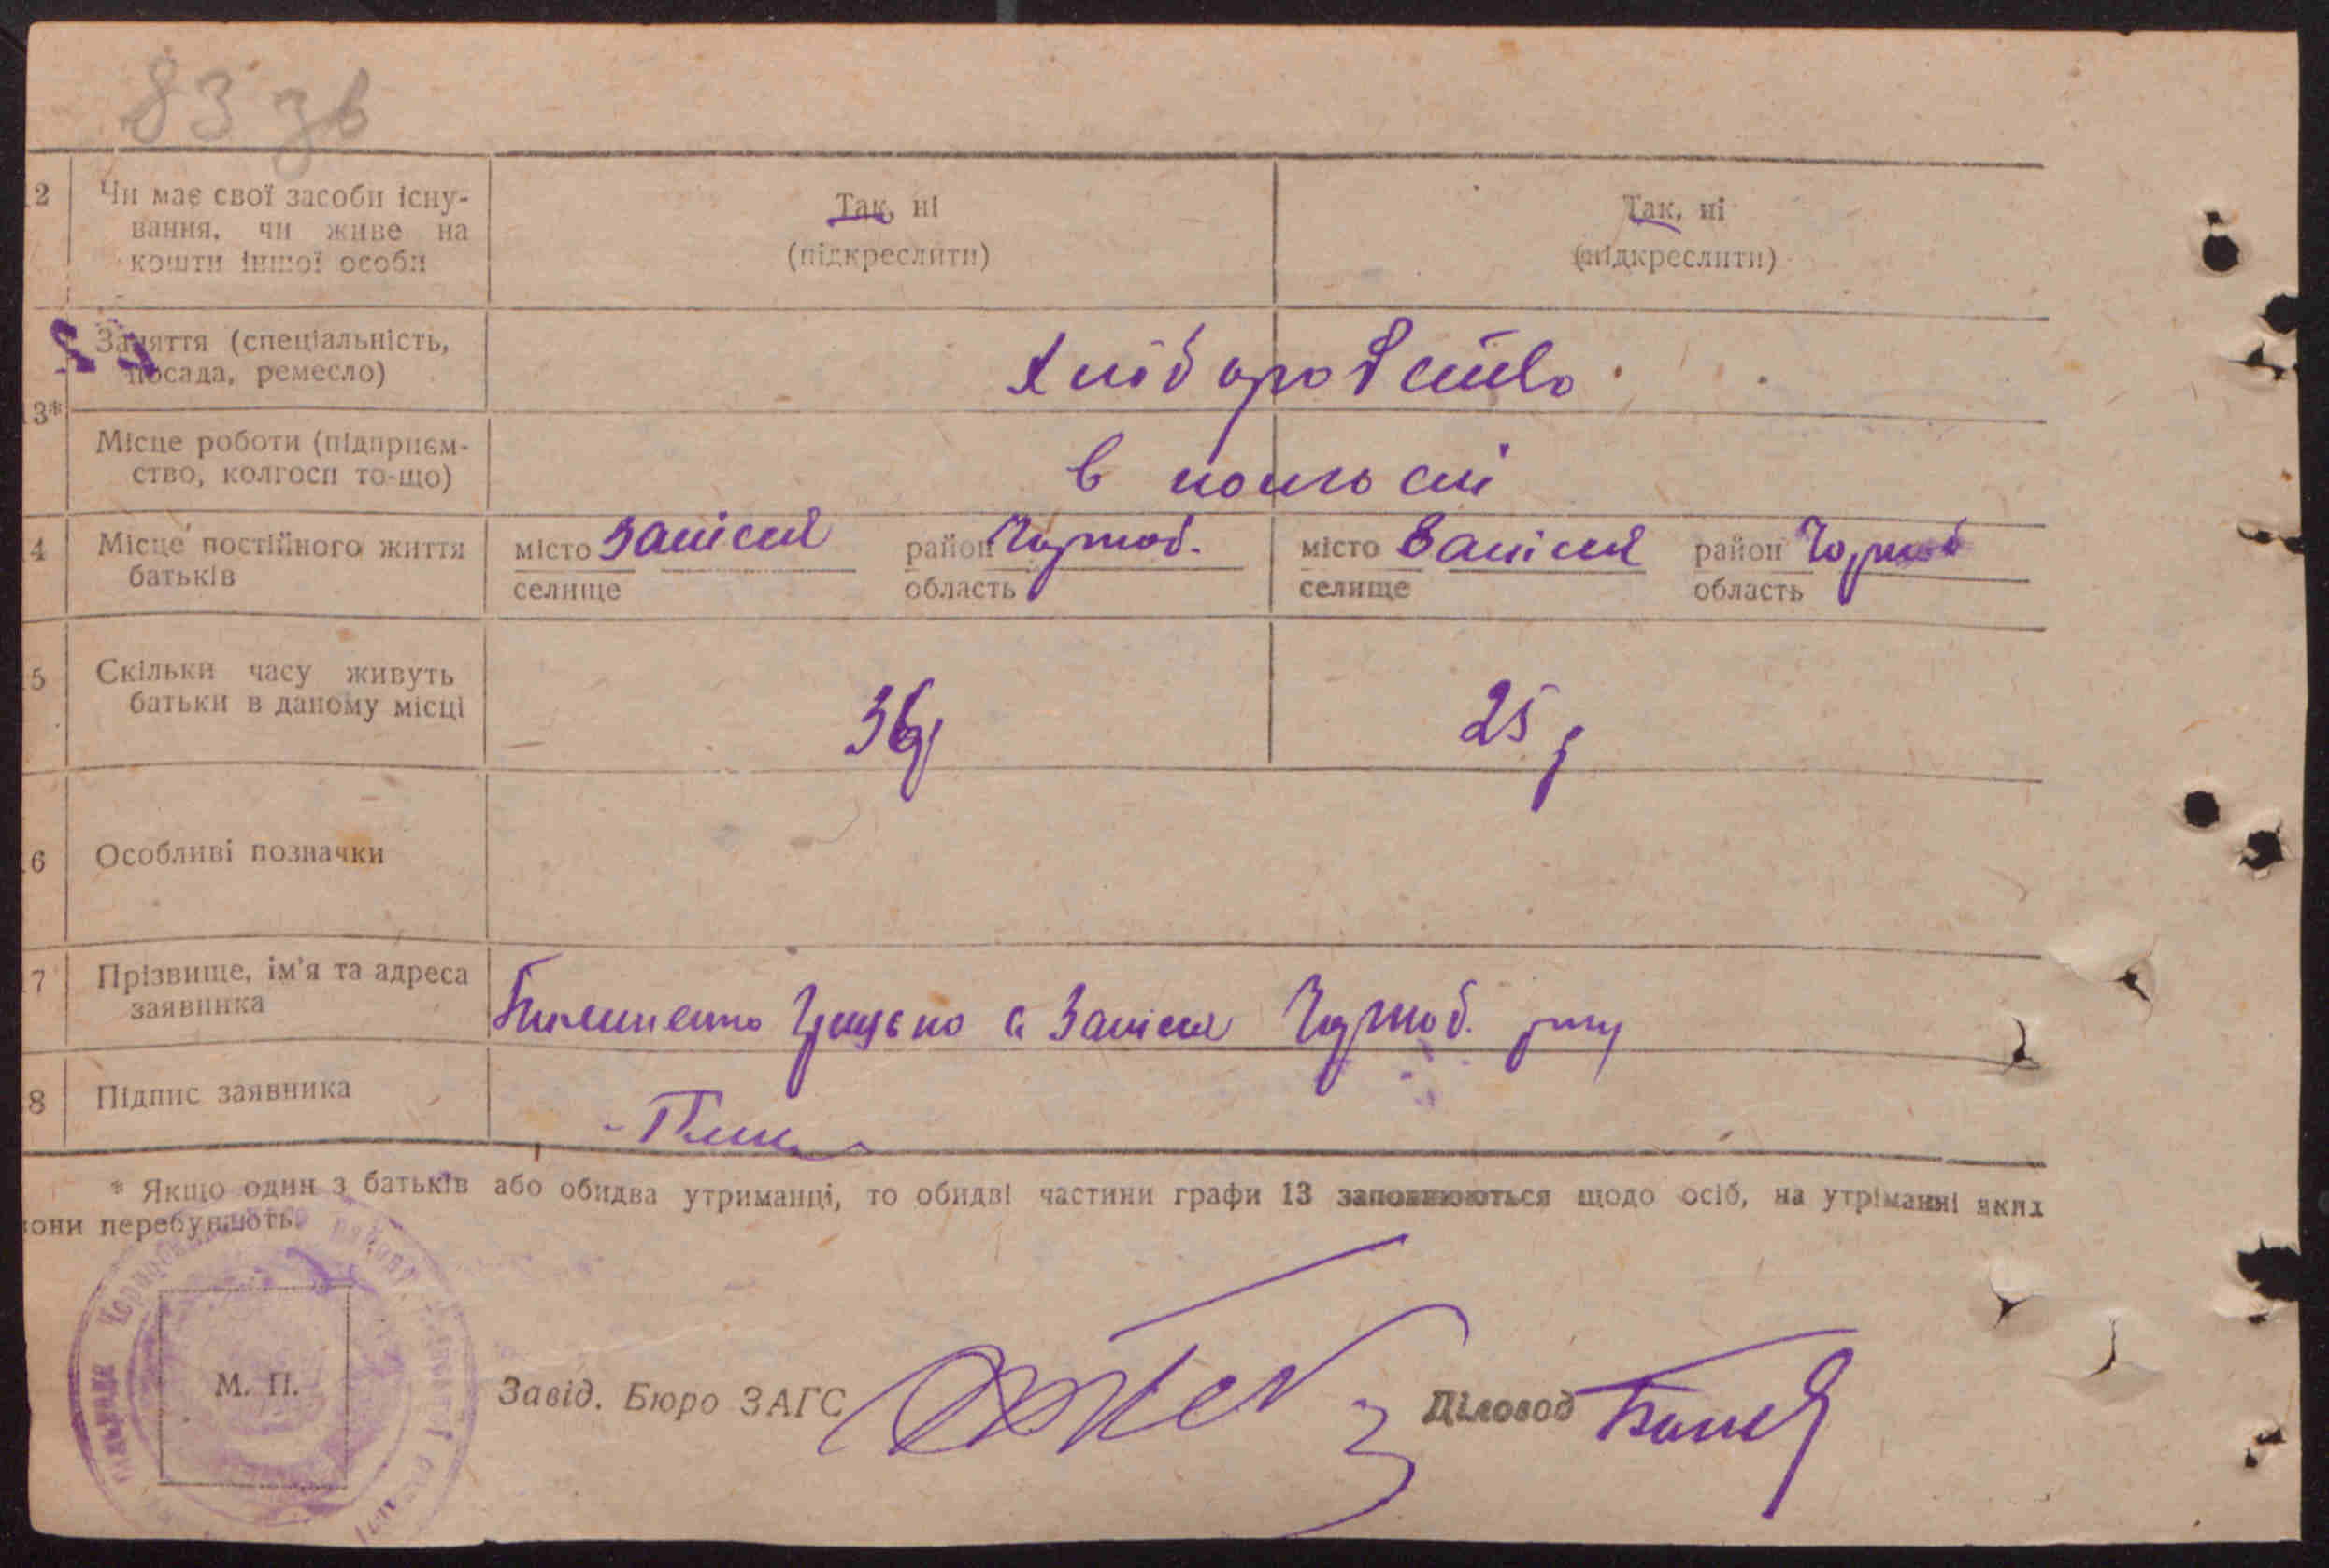 83 зв
12 Чи має свої засоби існу-
вання, чи живе на
кошти іншої особи
Так, ні
(підкреслити)
Так, ні
(підкреслити)
Заняття (спеціальність,
посада, ремесло)
Хліборобство
13*
Місце роботи (підприєм-
ство, колгосп то-що)
в колгоспі
14 Місце постійного життя
батьків
місто Залісся район Чорноб.
селище область
місто Залісся район Чорноб
селище область
15 Скільки часу живуть
батьки в даному місці
36 р
25 р
16 Особливі позначки
17 Прізвище, ім'я та адреса
заявника
с Залісся Чорноб. р-ну
18 Підпис заявника
* Якщо один з батьків або обидва утриманці, то обидві частини графи 13 заповнюються щодо осіб, на утриманні яких
вони перебувають.
М. П.
Завід. Бюро ЗАГС
Діловод